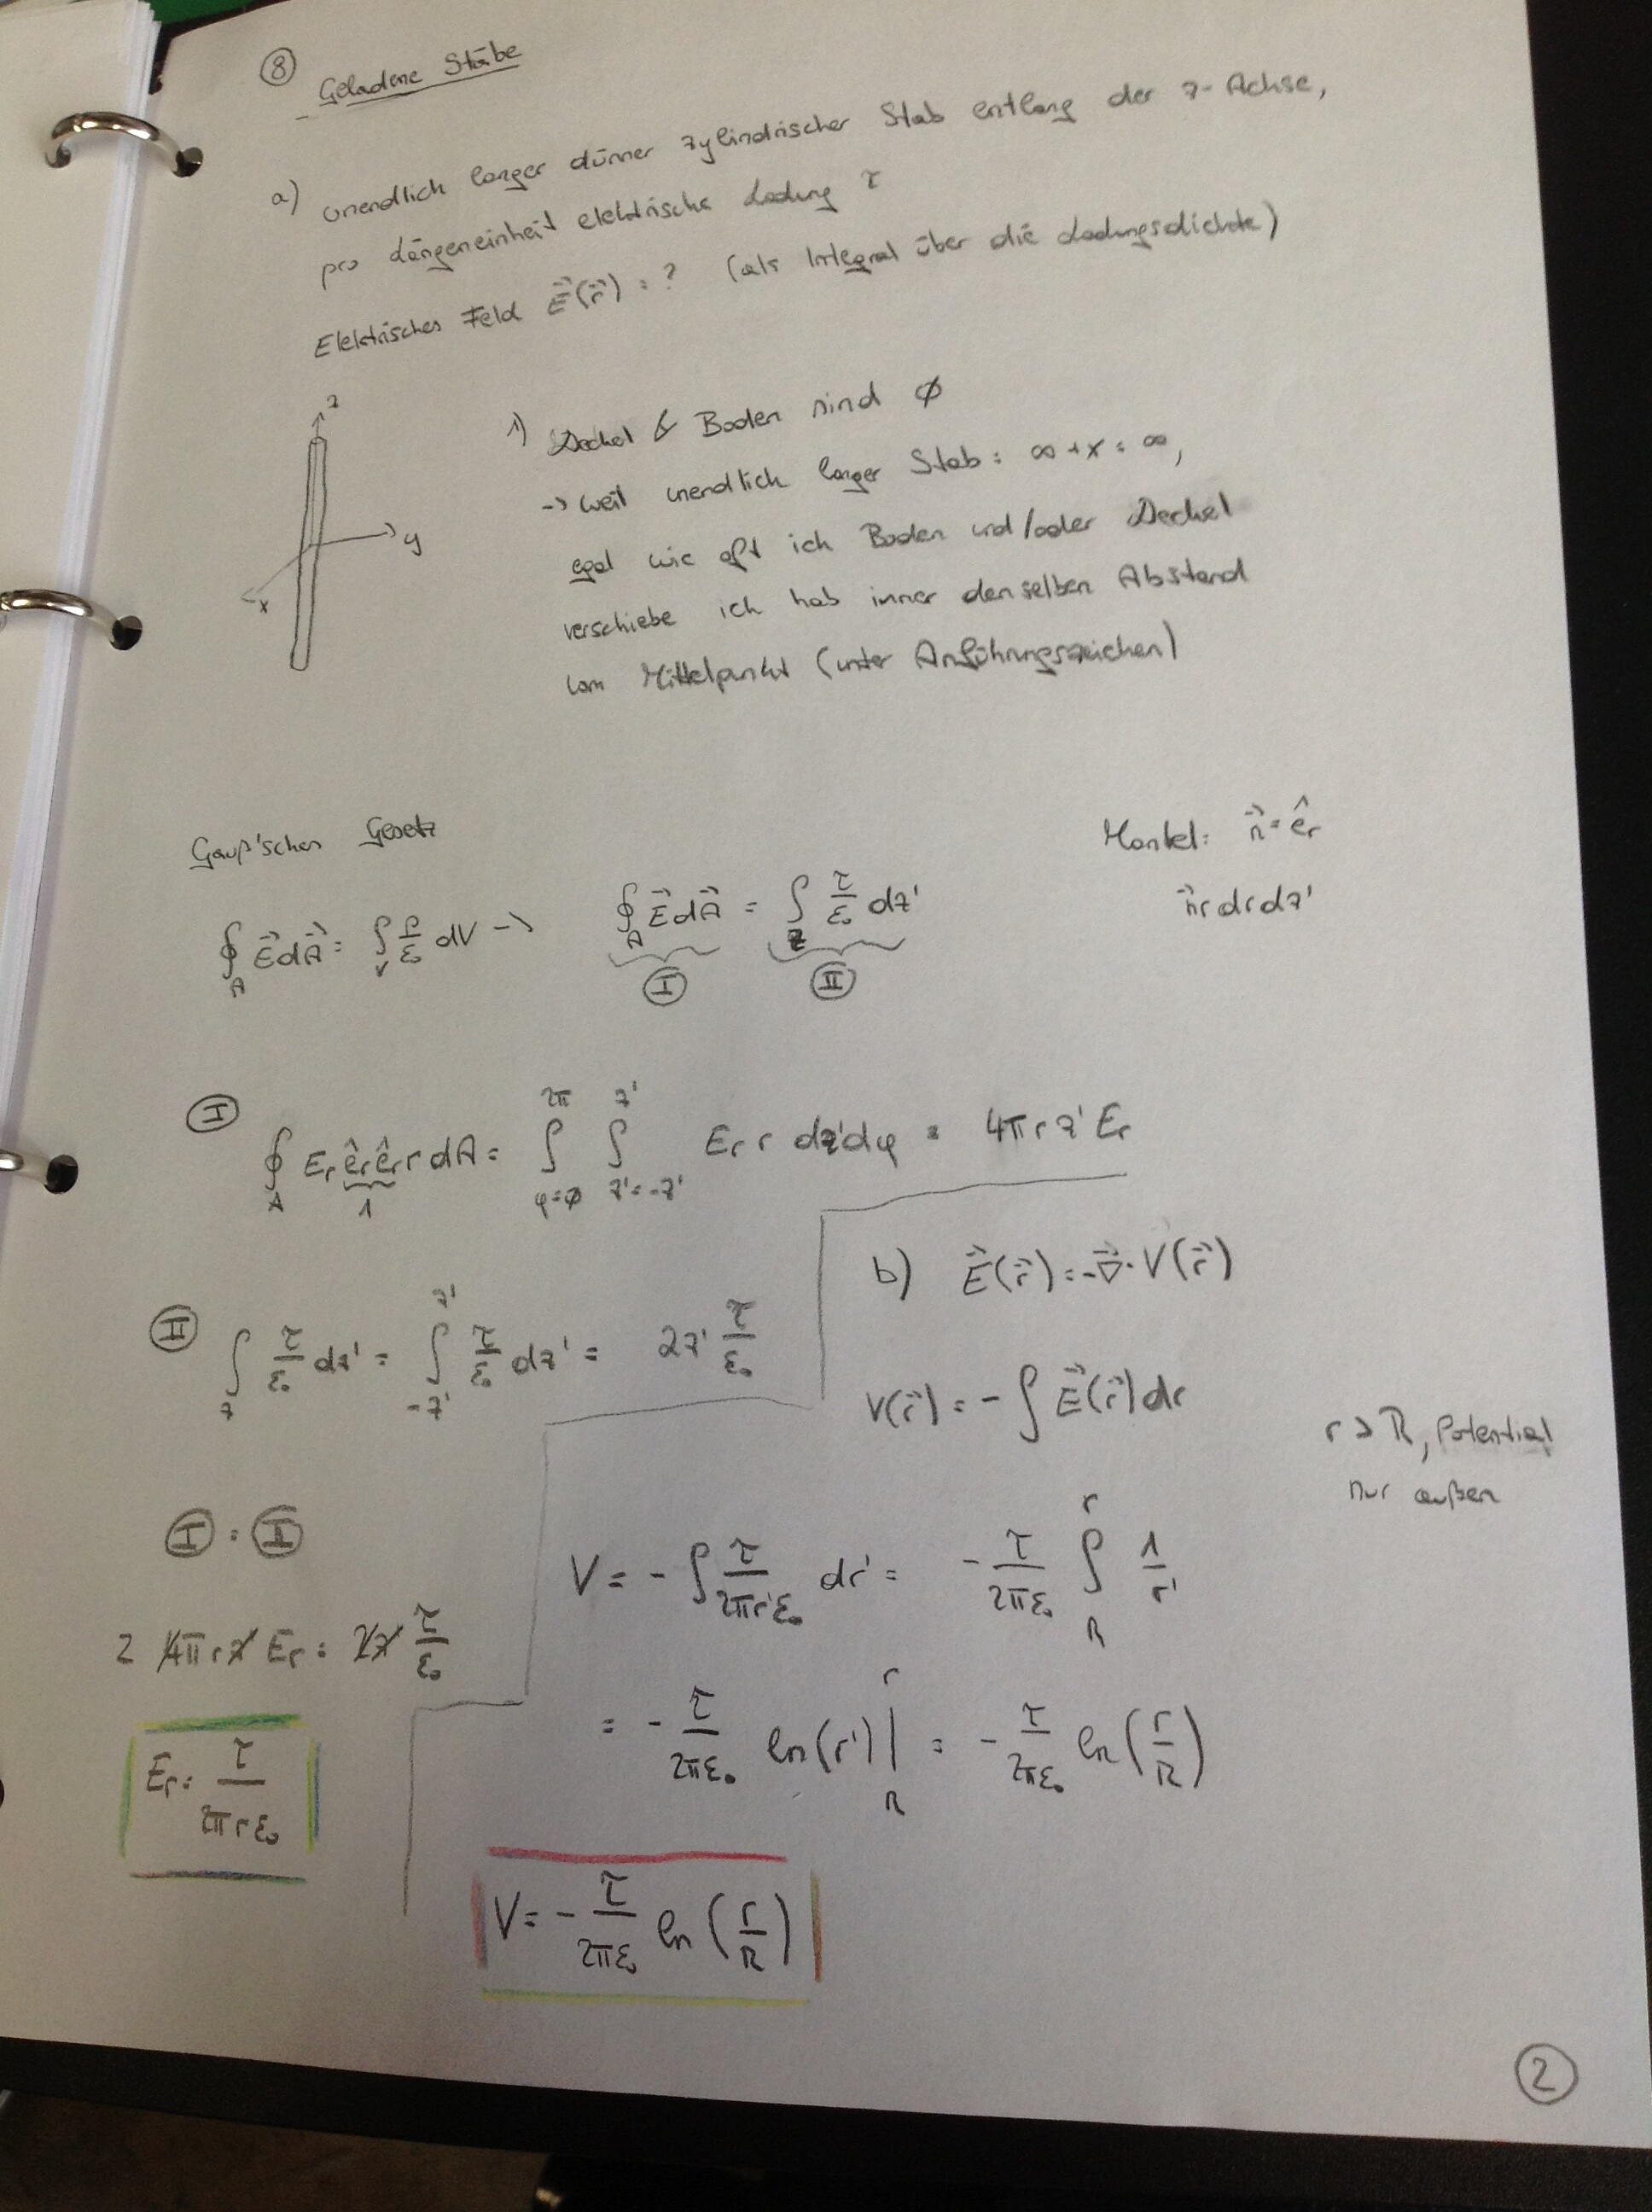 ⑧ Geladene Stäbe
a) unendlich langer dünner zylindrischer Stab entlang der z-Achse,
pro Längeneinheit elektrische Ladung τ
Elektrisches Feld E⃗(r⃗) = ? (als Integral über die Ladungsdichte)
z
y
x
1) Deckel & Boden sind ∅
-> weil unendlich langer Stab: ∞ + x = ∞,
egal wie oft ich Boden und/oder Deckel
verschiebe ich hab immer denselben Abstand
vom Mittelpunkt (unter Anführungszeichen)
Gauß'schen Gesetz
Mantel: n⃗ = ê_r
n⃗ r dr dz'
∮_A E⃗dA⃗ = ∫_V ρ/ε₀ dV -> ∮_A E⃗dA⃗ = ∫_z τ/ε₀ dz'
Ⓘ Ⅱ
Ⓘ ∮_A E_r ê_r ê_r r dA = ∫_{φ=∅}^{2π} ∫_{z'=-z'}^{z'} E_r r dz'dφ = 4π r z' E_r
1
Ⅱ ∫_z τ/ε₀ dz' = ∫_{-z'}^{z'} τ/ε₀ dz' = 2z' τ/ε₀
Ⓘ = Ⅱ
2 4π r z' E_r = 2z' τ/ε₀
E_r = τ/(2π r ε₀)
b) E⃗(r⃗) = -∇⃗·V(r⃗)
V(r⃗) = - ∫ E⃗(r⃗) dr
r > R, Potential
nur außen
V = - ∫ τ/(2π r' ε₀) dr' = - τ/(2π ε₀) ∫_R^r 1/r'
= - τ/(2π ε₀) ln(r') |_R^r = - τ/(2π ε₀) ln(r/R)
V = - τ/(2π ε₀) ln(r/R)
②